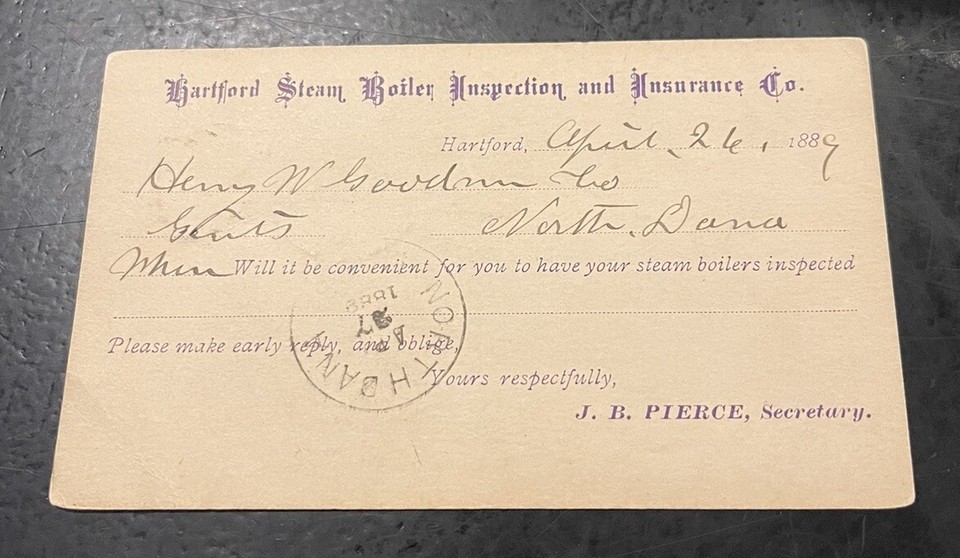 Hartford Steam Boiler Inspection and Insurance Co.
Hartford, April 26, 1889
Henry W Goodman Co
Gents North Dana
When Will it be convenient for you to have your steam boilers inspected
Please make early reply, and oblige,
Yours respectfully,
J. B. PIERCE, Secretary.
NORTH DANA
AP
27
1889